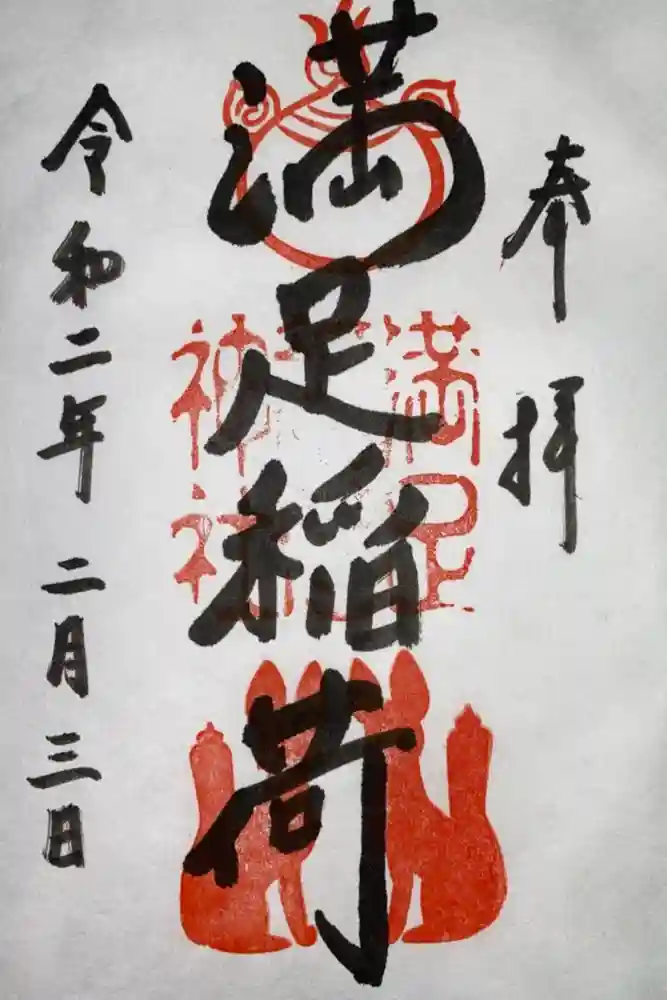 奉拝
満足稲荷
満足
神社
令和二年二月三日